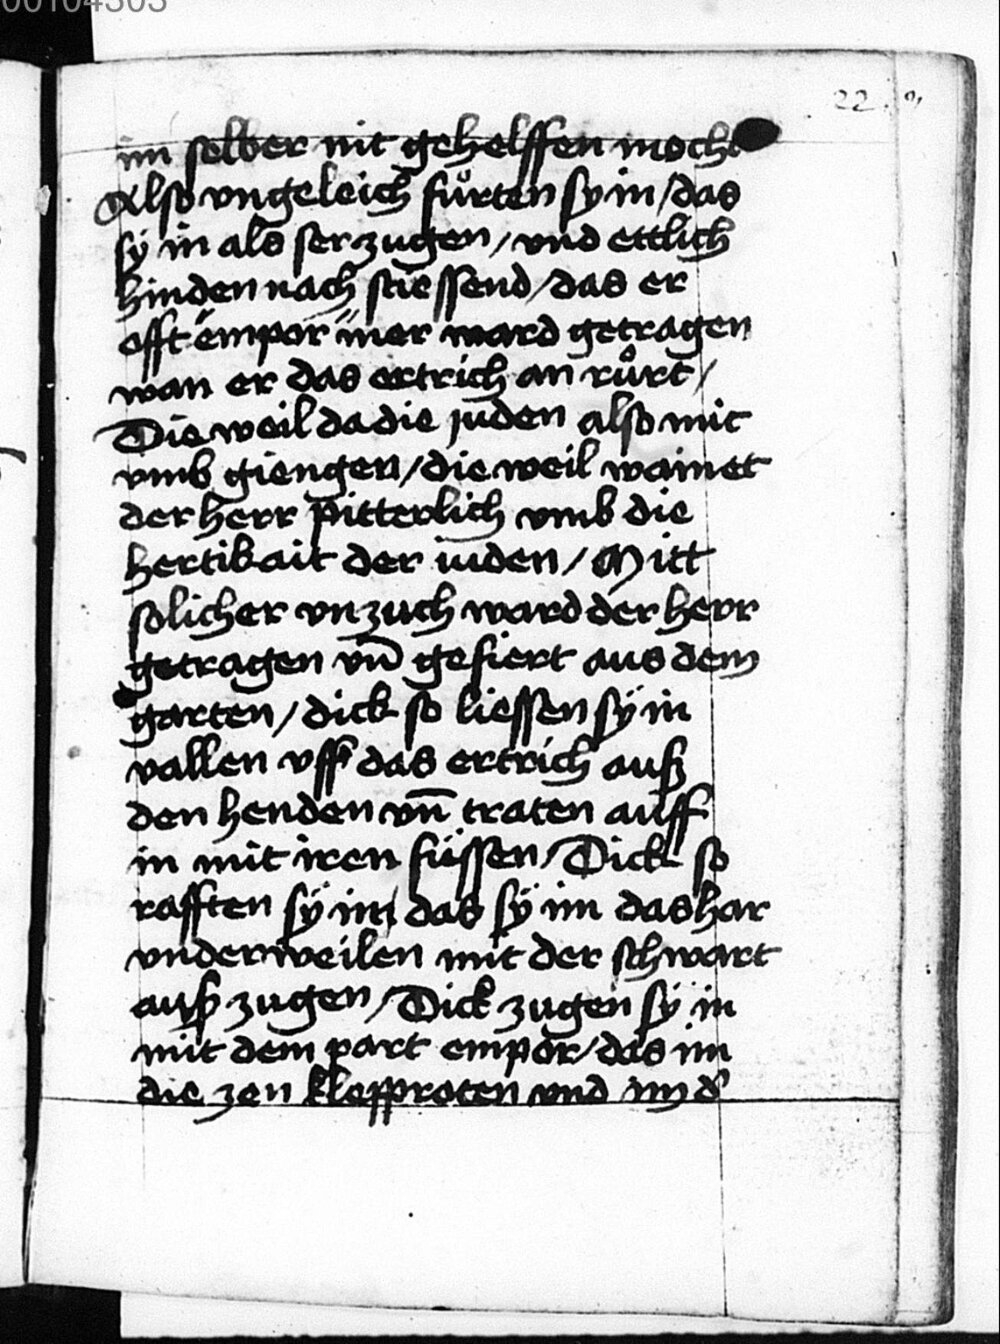 00104303
22
im selber nit gehelffen mocht
Also vngeleich fůrten sy in / das
sÿ in als ser zugen / vnd ettlich
hinden nach stiessend / das er
offt empor mer ward getragen
wan er das ertrich an růrt /
Die weil da die juden also mit
vmb giengen / die weil wainet
der herr pitterlich vmb die
hertikait der iuden / Mitt
solicher vnzuch ward der herr
getragen vn̄ gefiert aus dem
garten / dick so liessen sÿ in
vallen vff das ertrich auß
den henden vn̄ traten auff
in mit iren füssen / Dick so
rafften sÿ im das sÿ im das har
vnderweilen mit der schwart
auß zugen / Dick zugen sÿ in
mit dem part empor / das im
die zen kloppfoten vnd im d'